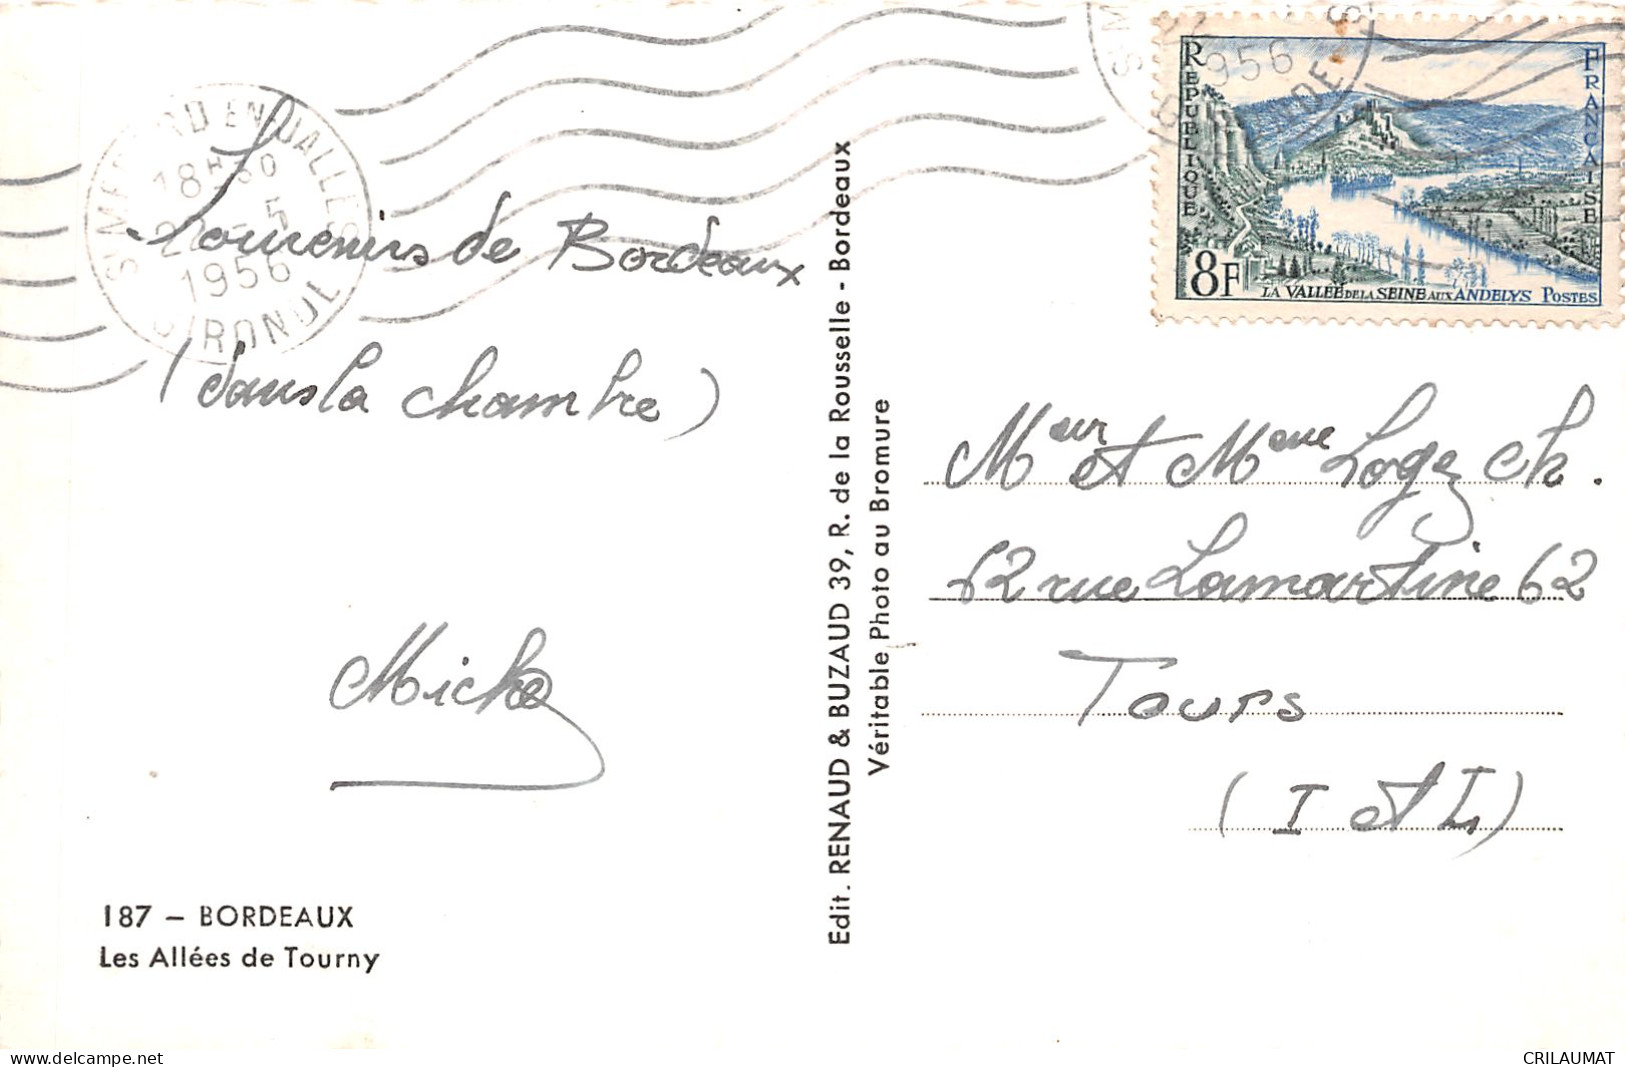 18H30
5
1956
GIRONDE
Souvenirs de Bordeaux
(dans la chambre)
Miche
187 – BORDEAUX
Les Allées de Tourny
Edit. RENAUD & BUZAUD 39, R. de la Rousselle - Bordeaux
Véritable Photo au Bromure
1956
REPUBLIQUE
FRANCAISE
8F
LA VALLEE DE LA SEINE AUX ANDELYS POSTES
Meur et Mme Logez Ch.
62 rue Lamartine 62
Tours
(I et L)
www.delcampe.net
CRILAUMAT